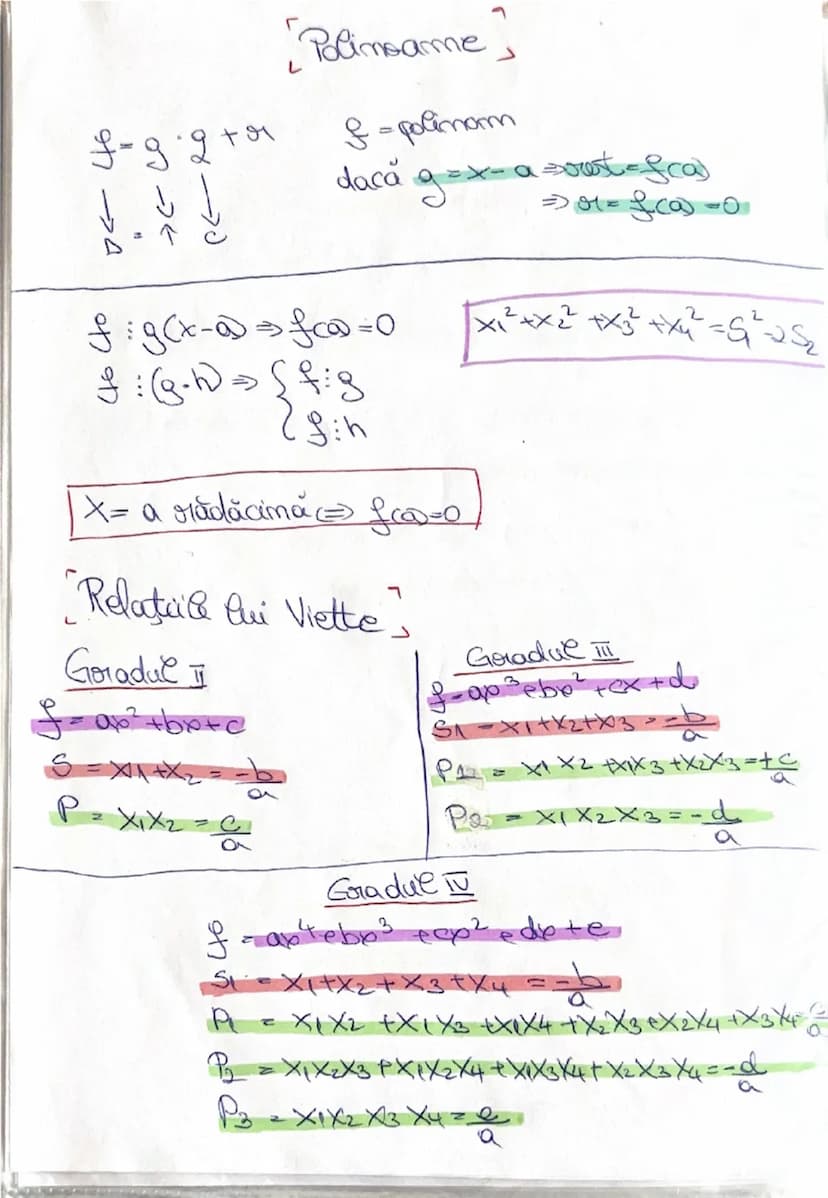 Polinoame
f = g · q + r
f = polinom
dacă g = x - a ⇒ rest = f(a)
⇒ r = f(a) = 0
↓ ↓ ↓
D = Î C
f ⋮ g(x-a) ⇒ f(a) = 0
x₁² + x₂² + x₃² + x₄² = S₁² - 2S₂
f ⋮ (g·h) ⇒ { f ⋮ g
f ⋮ h
X = a rădăcină ⇔ f(a) = 0
Relațiile lui Viette
Gradul II
f = ax² + bx + c
S = x₁ + x₂ = -b/a
P = x₁x₂ = c/a
Gradul III
f = ax³ + bx² + cx + d
S₁ = x₁ + x₂ + x₃ = -b/a
P₁ = x₁x₂ + x₁x₃ + x₂x₃ = +c/a
P₂ = x₁x₂x₃ = -d/a
Gradul IV
f = ax⁴ + bx³ + cx² + dx + e
S₁ = x₁ + x₂ + x₃ + x₄ = -b/a
P₁ = x₁x₂ + x₁x₃ + x₁x₄ + x₂x₃ + x₂x₄ + x₃x₄ = c/a
P₂ = x₁x₂x₃ + x₁x₂x₄ + x₁x₃x₄ + x₂x₃x₄ = -d/a
P₃ = x₁x₂x₃x₄ = e/a